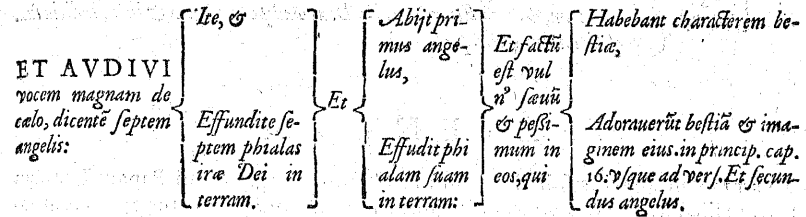 ET AVDIVI
vocem magnam de
cælo, dicentē septem
angelis:
Ite, &
Effundite se-
ptem phialas
iræ Dei in
terram.
Et
Abijt pri-
mus ange-
lus,
Effudit phi
alam suam
in terram:
Et factū
est vul
nꝰ sæuū
& pessi-
mum in
eos, qui
Habebant characterem be-
stiæ,
Adorauerūt bestiā & ima-
ginem eius. in princip. cap.
16. vsque ad vers. Et secun-
dus angelus.